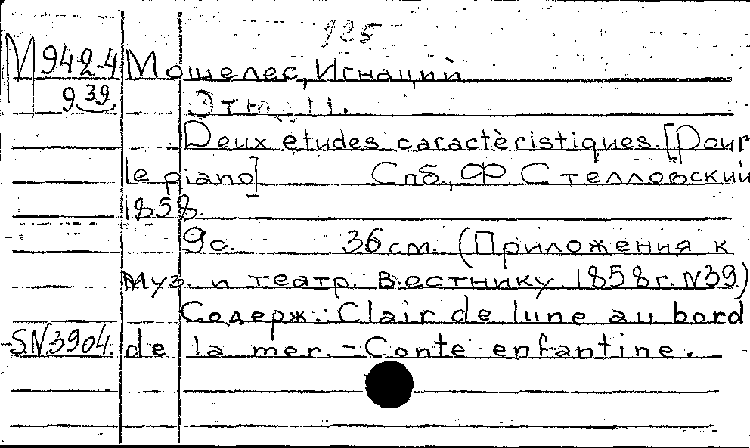 925
М 942-4 Мошелес, Игнаций
9 39 Этю 11.
Deux études caractèristiques. [Pour
le piano] Спб., Ф Стелловский
1858.
9с. 36см. (Приложения к
Муз. и театр. Вестнику 1858г. N39)
Содерж.: Clair de lune au bord
SN3904. de la mer. - Conte enfantine.